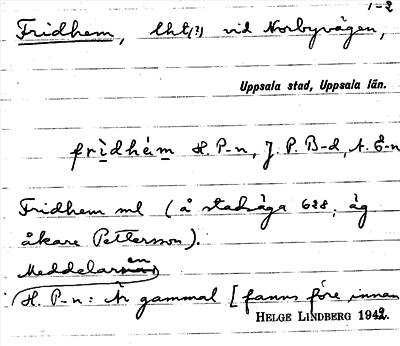 1-2
Fridhem, lht(?) vid Norbyvägen,
Uppsala stad, Uppsala län.
frìdhém H. P-n, J. P. B-d, A. E-n
Fridhem ml (å stadsäga 628; äg
åkare Pettersson).
Meddelaren
H. P-n: Är gammal [fanns före innan
HELGE LINDBERG 1942.